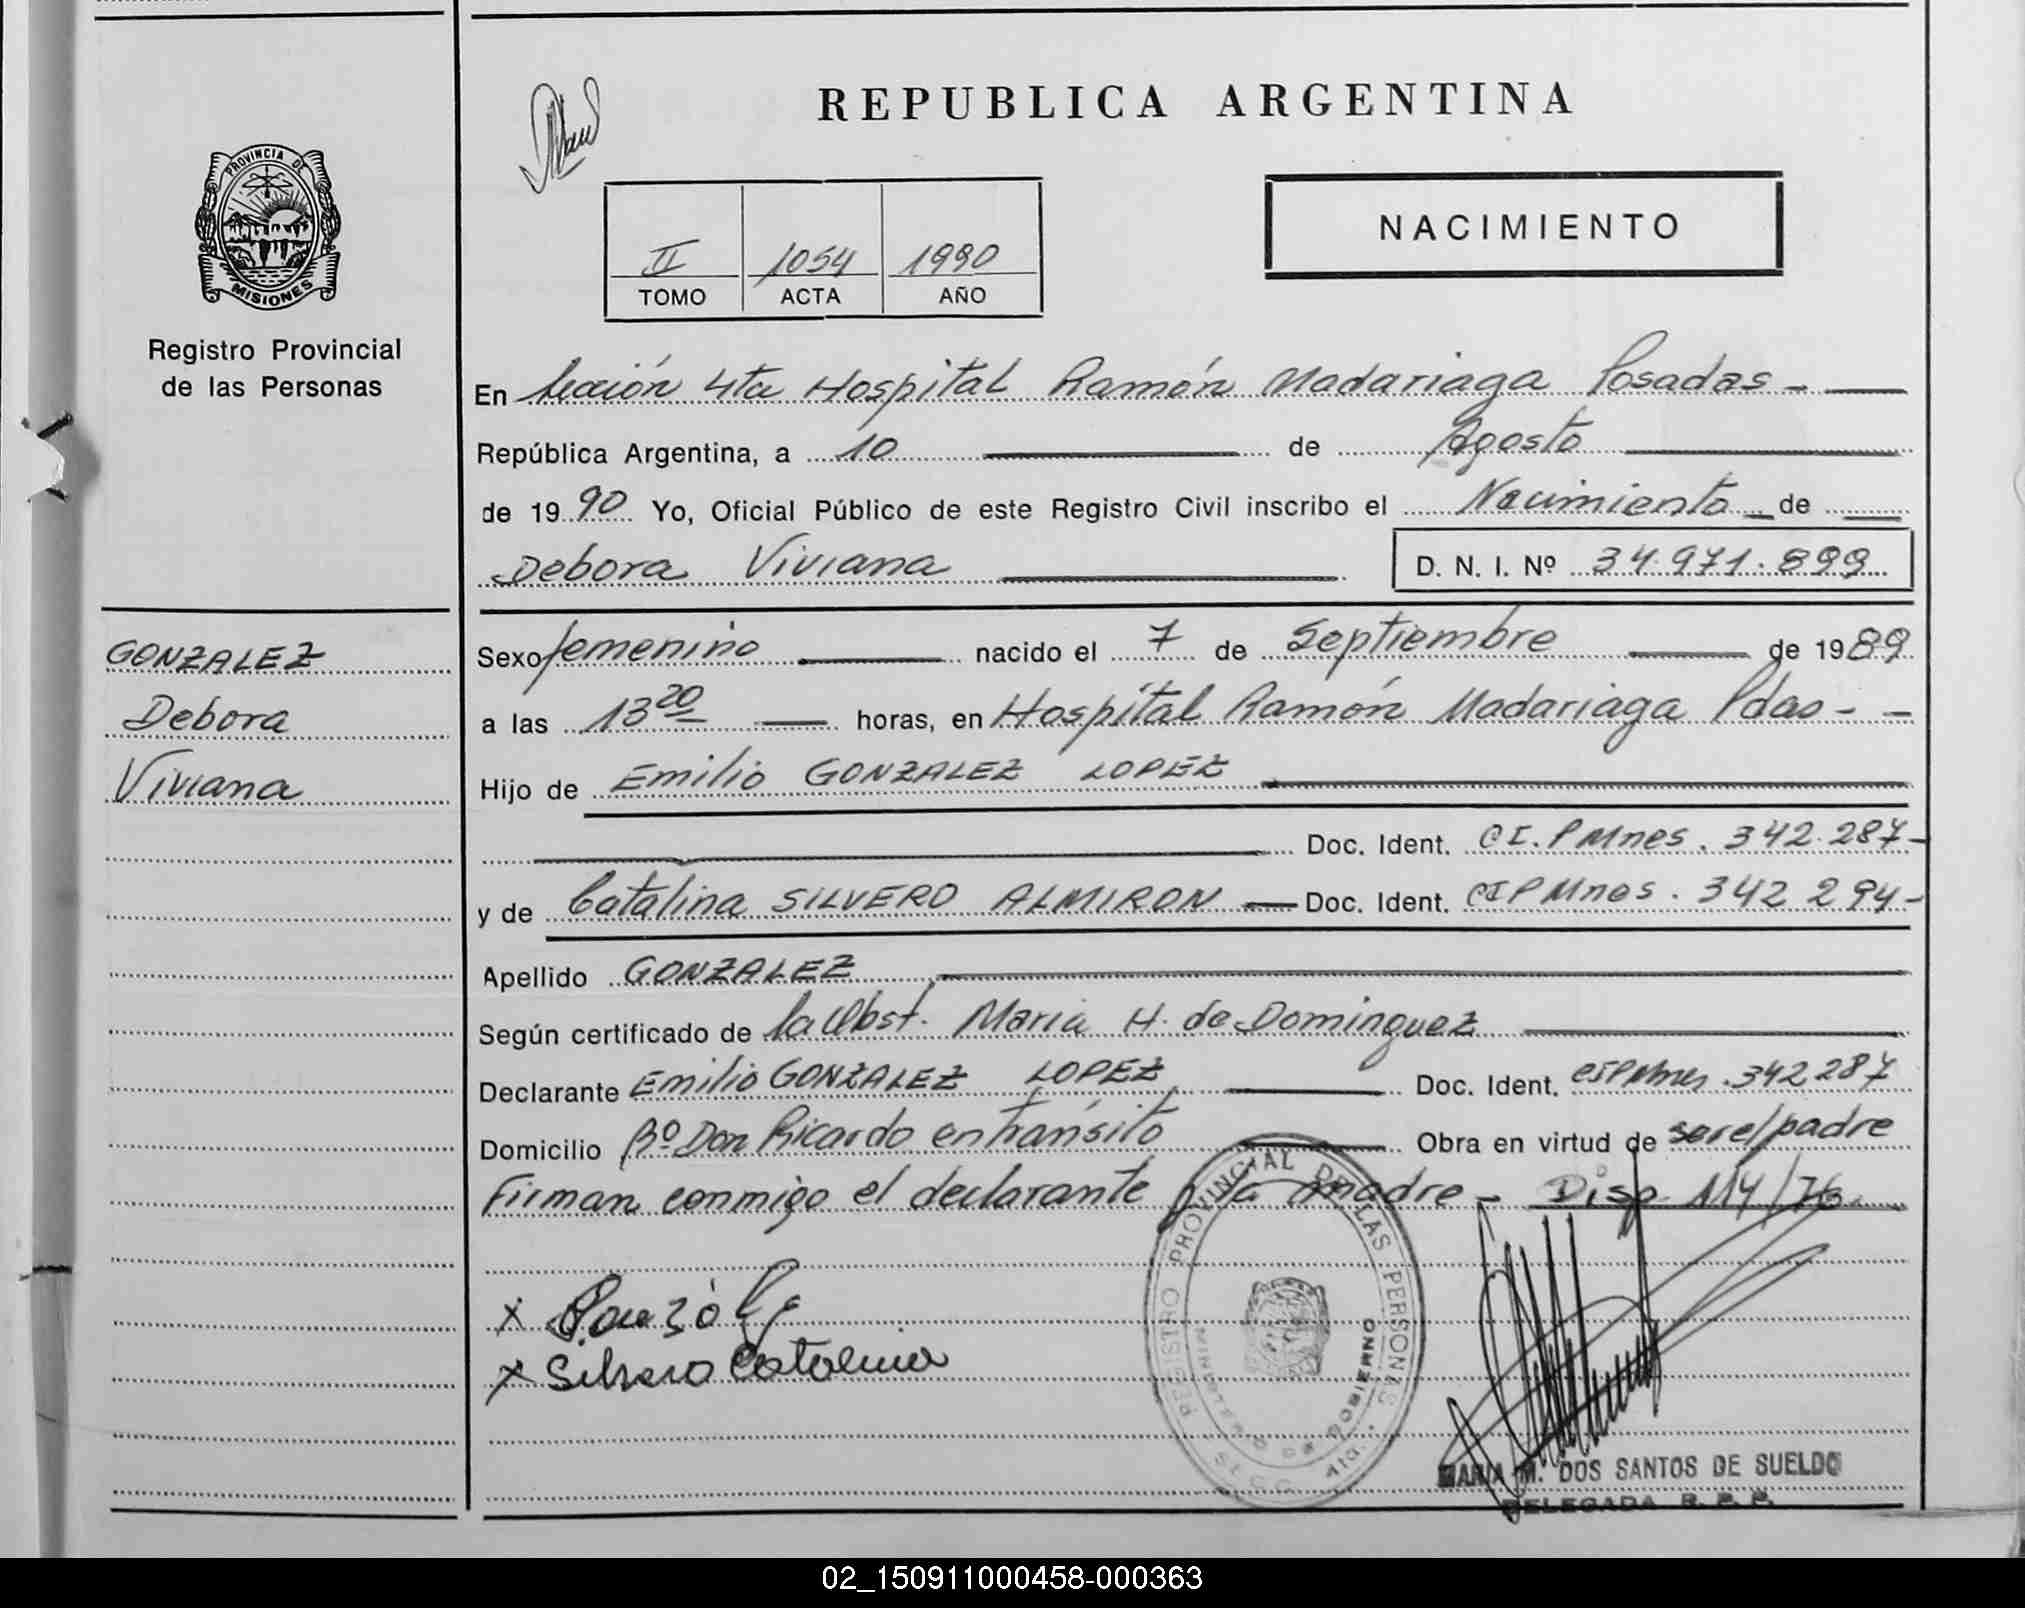 REPUBLICA ARGENTINA
PROVINCIA DE
MISIONES
Registro Provincial
de las Personas
NACIMIENTO
II 1054 1990
TOMO ACTA AÑO
En Sección 4ta Hospital Ramón Madariaga Posadas -
República Argentina, a 10 de Agosto
de 1990 Yo, Oficial Público de este Registro Civil inscribo el Nacimiento de
Debora Viviana D. N. I. Nº 34.971.899
GONZALEZ
Debora
Viviana
Sexo femenino nacido el 7 de Septiembre de 1989
a las 13 20 horas, en Hospital Ramón Madariaga Pdas - -
Hijo de Emilio GONZALEZ LOPEZ
Doc. Ident. CI. P Mnes. 342.287-
y de Catalina SILVERO ALMIRON Doc. Ident. CIP Mnes. 342 294-
Apellido GONZALEZ
Según certificado de la Obst. Maria H. de Dominguez
Declarante Emilio GONZALEZ LOPEZ Doc. Ident. CIP Mnes. 342 287
Domicilio Bº Don Ricardo en tránsito Obra en virtud de ser el padre
Firman conmigo el declarante y la madre - Disp 114/76
x
x Silvero Catalina
REGISTRO PROVINCIAL DE LAS PERSONAS
MINISTERIO DE GOBIERNO
MARIA M. DOS SANTOS DE SUELDO
DELEGADA R. P. P.
02_150911000458-000363